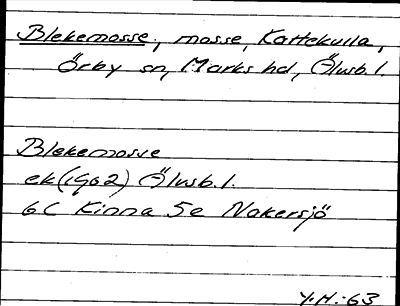 Blekemosse, mosse, Kattekulla,
Örby sn, Marks hd, Älvsb.l.
Blekemosse
ek(1962) Älvsb.l.
6C Kinna 5e Nakersjö
Y.H.:63